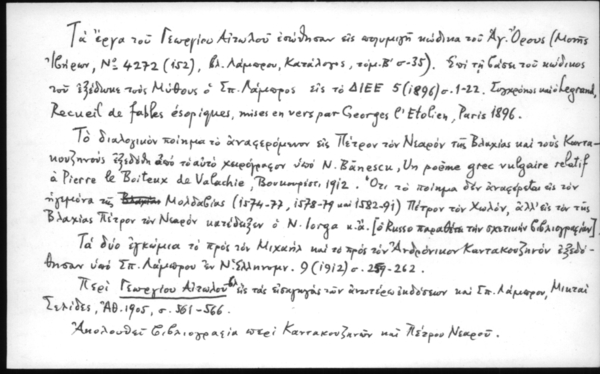 Τὰ ἔργα τοῦ Γεωργίου Αἰτωλοῦ ἐσώθησαν εἰς συμμιγῆ κώδικα τοῦ Ἁγ. Ὄρους (Μονῆς
Ἰβήρων, Νο 4272 (152), βλ. Λάμπρου, Κατάλογος, τόμ. Β' σ. 35). Ἐπὶ τῇ βάσει τοῦ κώδικος
τοῦ ἐξέδωκε τοὺς Μύθους ὁ Σπ. Λάμπρος εἰς τὸ ΔΙΕΕ 5 (1896) σ. 1-22. Συγχρόνως καὶ ὁ Legrand,
Recueil de fables ésopiques, mises en vers par Georges l'Etolien, Paris 1896.
Τὸ διαλογικὸν ποίημα τὸ ἀναφερόμενον εἰς Πέτρον τὸν Νεαρὸν τῆς Βλαχίας καὶ τοὺς Καντα-
κουζηνοὺς ἐξεδόθη ἀπὸ τὸ αὐτὸ χειρόγραφον ὑπὸ N. Bănescu, Un poème grec vulgaire relatif
à Pierre le Boiteux de Valachie, Βουκουρέστι, 1912. Ὅτι τὸ ποίημα δὲν ἀναφέρεται εἰς τὸν
ἡγεμόνα τῆς Μολδαβίας (1574-77, 1578-79 καὶ 1582-91) Πέτρον τὸν Χωλόν, ἀλλ' εἰς τὸν τῆς
Βλαχίας Πέτρον τὸν Νεαρὸν κατέδειξεν ὁ N. Iorga κ.ἄ. [ὁ Russo παραθέτει τὴν σχετικὴν βιβλιογραφίαν].
Τὰ δύο ἐγκώμια τὸ πρὸς τὸν Μιχαὴλ καὶ τὸ πρὸς τὸν Ἀνδρόνικον Καντακουζηνὸν ἐξεδό-
θησαν ὑπὸ Σπ. Λάμπρου ἐν Ν. Ἑλληνομν. 9 (1912) σ. 259-262.
Περὶ Γεωργίου Αἰτωλοῦ βλ. εἰς τὰς εἰσαγωγὰς τῶν ἀνωτέρω ἐκδόσεων καὶ Σπ. Λάμπρου, Μικταὶ
Σελίδες, Ἀθ. 1905, σ. 561-566.
Ἀκολουθεῖ βιβλιογραφία περὶ Καντακουζηνῶν καὶ Πέτρου Νεαροῦ.